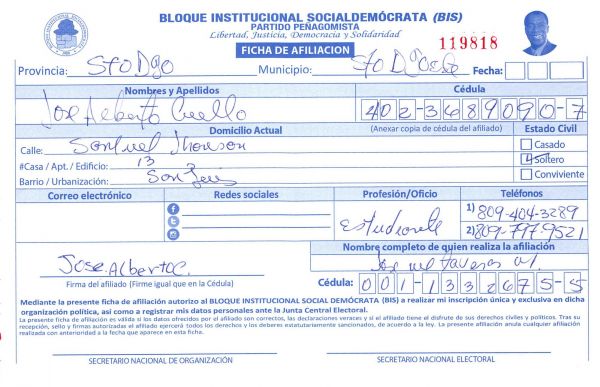 BLOQUE INSTITUCIONAL SOCIALDEMÓCRATA (BIS)
PARTIDO PEÑAGOMISTA
Libertad, Justicia, Democracia y Solidaridad
FICHA DE AFILIACION
119818
Provincia: Sto Dgo Municipio: Sto D. Oeste Fecha:
Nombres y Apellidos Cédula
Jose Alberto Cuello 402-3689090-7
Domicilio Actual (Anexar copia de cédula del afiliado) Estado Civil
Calle: Jhonson Casado
#Casa / Apt. / Edificio: 13 Soltero
Barrio / Urbanización: San Luis Conviviente
Correo electrónico Redes sociales Profesión/Oficio Teléfonos
Estudiante 1) 809-404-3289
2) 809-797-9521
Nombre completo de quien realiza la afiliación
Jose Alberto C.
Firma del afiliado (Firme igual que en la Cédula) Cédula: 001-1332675-5
Mediante la presente ficha de afiliación autorizo al BLOQUE INSTITUCIONAL SOCIAL DEMÓCRATA (BIS) a realizar mi inscripción única y exclusiva en dicha
organización política, así como a registrar mis datos personales ante la Junta Central Electoral.
La presente ficha de afiliación es válida si los datos ofrecidos por el afiliado son correctos, las declaraciones veraces y si el afiliado tiene el disfrute de sus derechos civiles y políticos. Tras su
recepción, sello y firmas autorizadas el afiliado ejercerá todos los derechos y los deberes estatutariamente sancionados, de acuerdo a la ley. La presente afiliación anula cualquier afiliación
realizada con anterioridad a la fecha que aparece en esta ficha.
SECRETARIO NACIONAL DE ORGANIZACIÓN SECRETARIO NACIONAL ELECTORAL